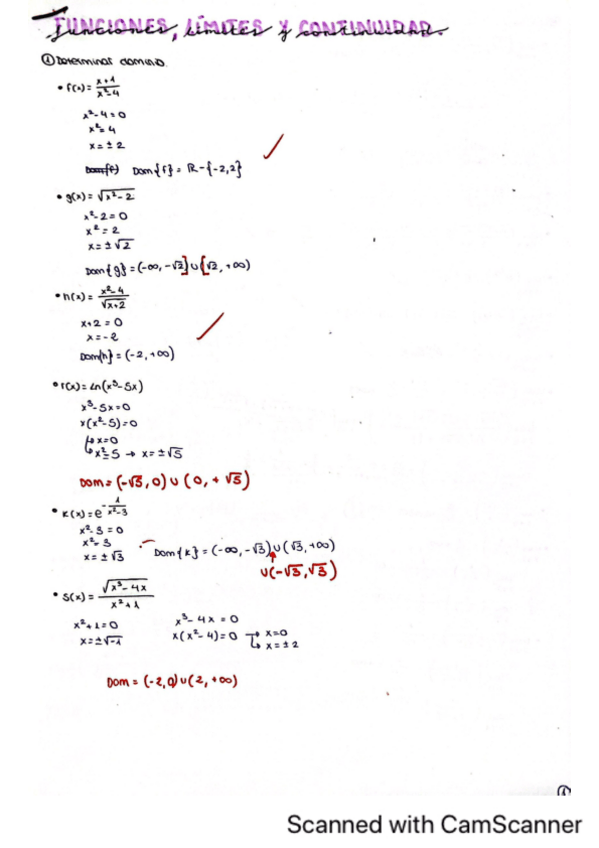 FUNCIONES, LÍMITES Y CONTINUIDAD.
① Determinar dominio.
• f(x) = (x+1)/(x²-4)
x²-4=0
x²=4
x=±2
Dom(f) Dom{f} = R-{-2,2}
• g(x) = √(x²-2)
x²-2=0
x²=2
x=±√2
Dom{g} = (-∞, -√2] ∪ [√2, +∞)
• h(x) = (x²-4)/√(x+2)
x+2=0
x=-2
Dom{h} = (-2, +∞)
• r(x) = Ln(x³-5x)
x³-5x=0
x(x²-5)=0
↳ x=0
↳ x²=5 → x=±√5
Dom = (-√5, 0) ∪ (0, +√5)
• k(x) = e^(-1/(x²-3))
x²-3=0
x²=3
x=±√3
Dom{k} = (-∞, -√3) ∪ (√3, +∞)
∪(-√3, √3)
• s(x) = √(x³-4x)/(x²+1)
x²+1=0 x³-4x=0
x=±√-1 x(x²-4)=0 → x=0
↳ x=±2
Dom = (-2,0) ∪ (2, +∞)
Scanned with CamScanner